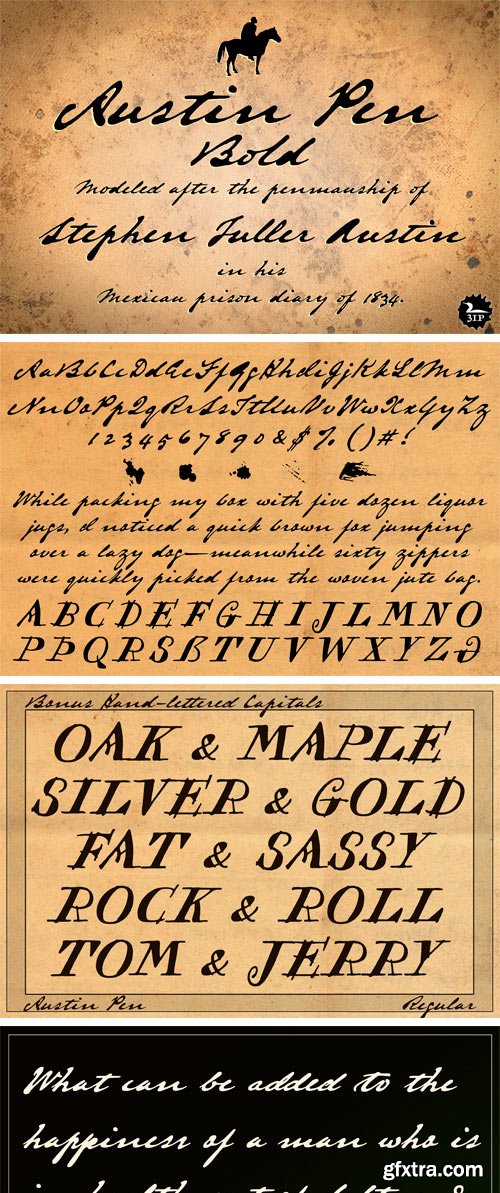 Austin Pen
Bold
Modeled after the penmanship of
Stephen Fuller Austin
in his
Mexican prison diary of 1834.
3IP
AaBbCcDdEeFfGgHhIiJjKkLlMm
NnOoPpQqRrSsTtUuVvWwXxYyZz
1234567890&$%()#!
While packing my box with five dozen liquor
jugs, I noticed a quick brown fox jumping
over a lazy dog—meanwhile sixty zippers
were quickly picked from the woven jute bag.
ABCDEFGHIJLMNO
PÞQRSßTUVWXYZƏ
Bonus Hand-lettered Capitals
OAK & MAPLE
SILVER & GOLD
FAT & SASSY
ROCK & ROLL
TOM & JERRY
Austin Pen
Regular
What can be added to the
happiness of a man who is
gfxtra.com